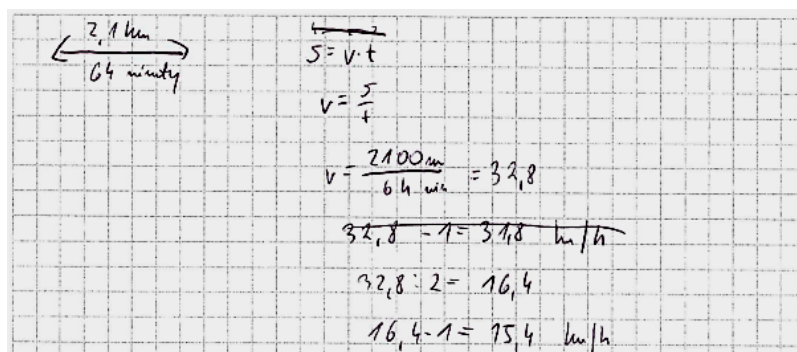 2,1 km
64 minuty
s = v · t
v = s/t
v = 2100 m / 64 min = 32,8
32,8 - 1 = 31,8 km/h
32,8 : 2 = 16,4
16,4 - 1 = 15,4 km/h